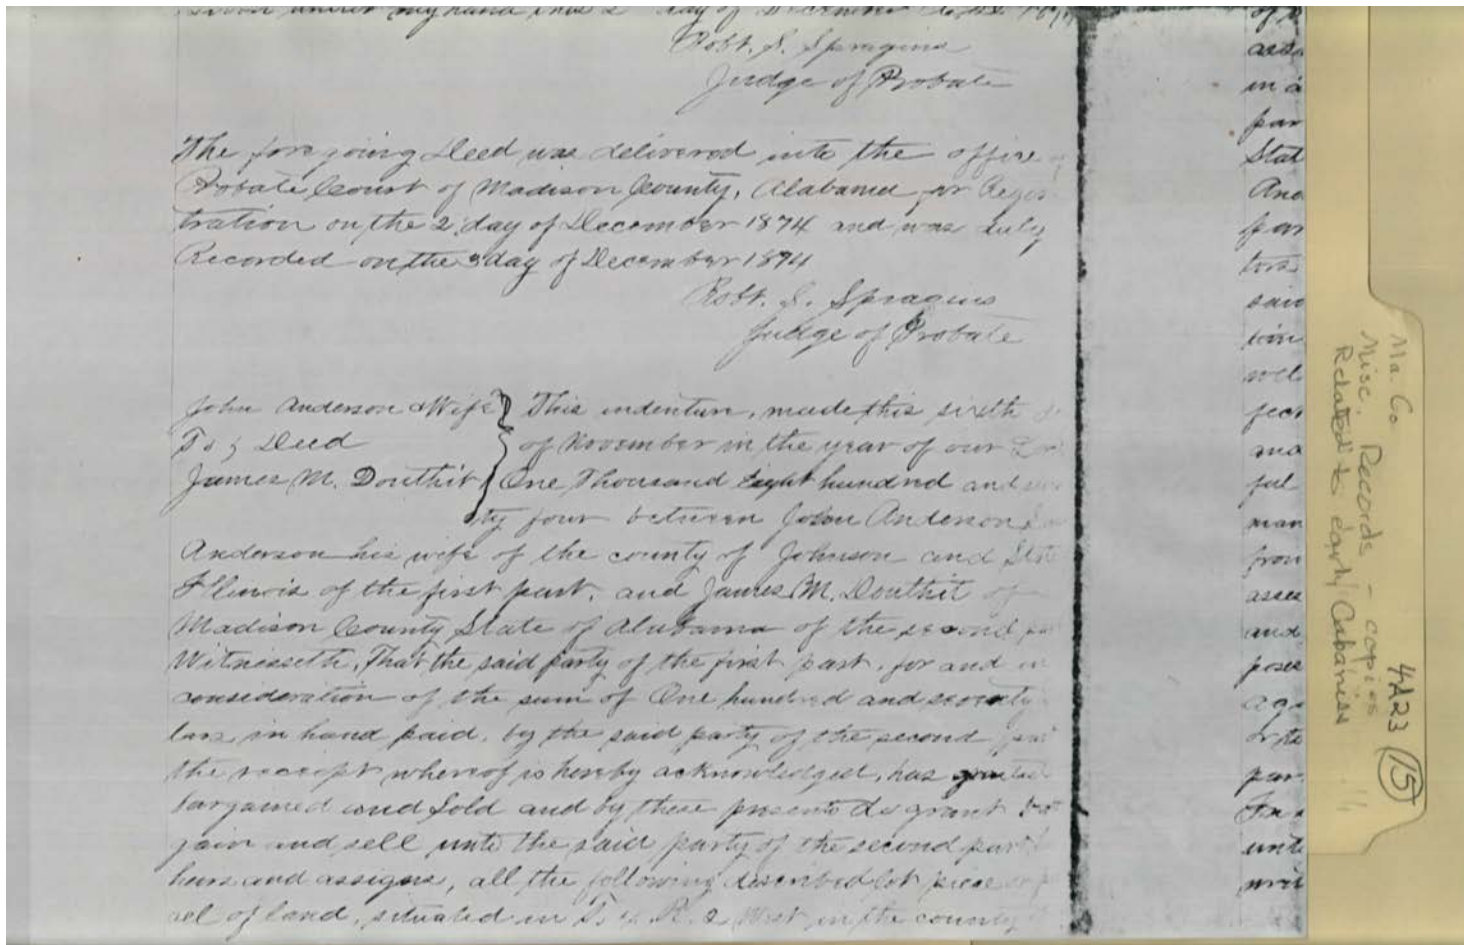 Given under my hand this 2 day of December
Robt. S. Spragins
Judge of Probate
The foregoing Deed was delivered into the office
Probate Court of Madison County, Alabama for Regis
tration on the 2 day of December 1874 and was duly
Recorded on the 3 day of December 1874
Robt. S. Spragins
Judge of Probate
John Anderson & Wife
To } Deed
James M. Douthit
This indenture, made this sixth
of November in the year of our
One Thousand Eight hundred and
ty four between John Anderson
Anderson his wife of the county of Johnson and State
Illinois of the first part, and James M. Douthit of
Madison County State of Alabama of the second
Witnesseth, That the said party of the first part, for and in
consideration of the sum of One hundred and seventy
lars in hand paid, by the said party of the second part
the receipt whereof is hereby acknowledged, has granted
bargained and sold and by these presents do grant bar
gain and sell unto the said party of the second part
heirs and assigns, all the following described lot piece or
cel of land, situated in T. 4. R. 2 West in the county
in a
par
Stat
And
par
tors
said
unto
man
from
asses
and
par
Ma. Co Records - copies
Misc.
Related to early Cabaniss
4223 (15)